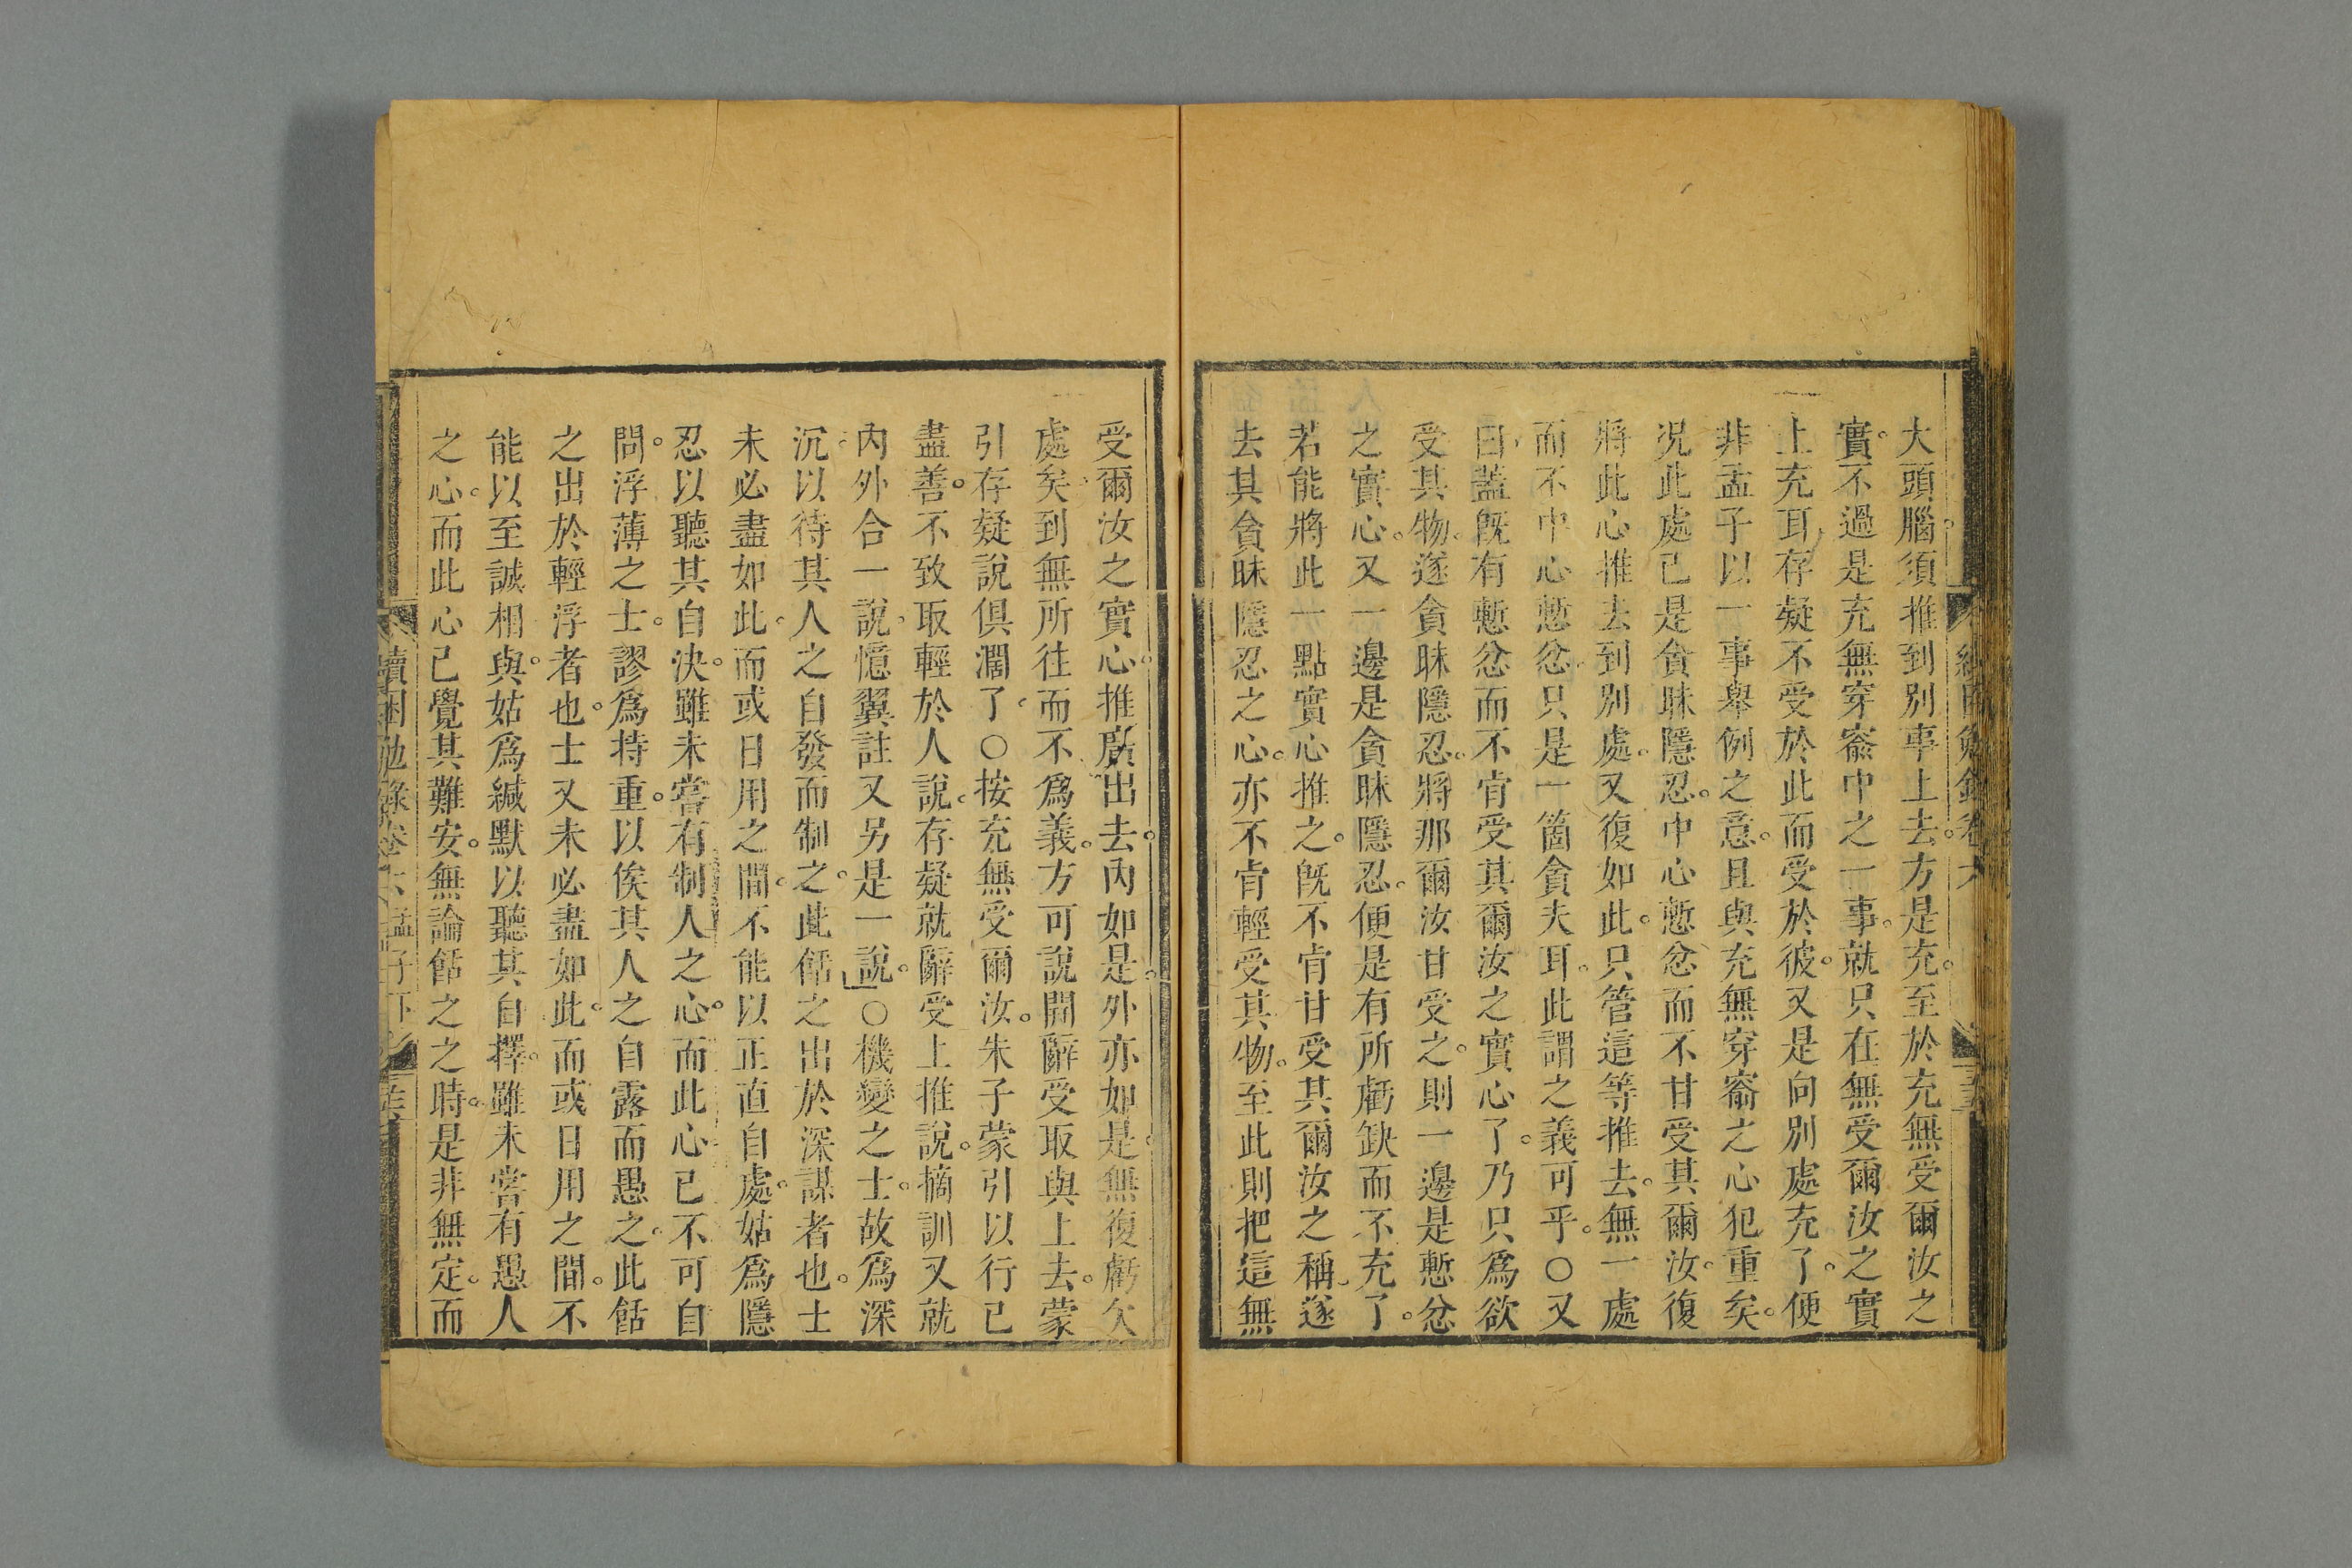 大頭腦須推到別事上去方是充至於充無受爾汝之
實不過是充無穿窬中之一事就只在無受爾汝之實
上充耳存疑不受於此而受於彼又是向別處充了便
非孟子以一事舉例之意且與充無穿窬之心犯重矣
況此處已是貪昧隱忍中心慙忿而不甘受其爾汝復
將此心推去到別處又復如此只管這等推去無一處
而不中心慙忿只是一箇貪夫耳此謂之義可乎○又
曰蓋旣有慙忿而不肯受其爾汝之實心了乃只爲欲
受其物遂貪昧隱忍將那爾汝甘受之則一邊是慙忿
之實心又一邊是貪昧隱忍便是有所虧缺而不充了
若能將此一點實心推之旣不肯甘受其爾汝之稱遂
去其貪昧隱忍之心亦不肯輕受其物至此則把這無
受爾汝之實心推廣出去內如是外亦如是無復虧欠
處矣到無所往而不爲義方可說開辭受取與上去蒙
引存疑說俱濶了○按充無受爾汝朱子蒙引以行已
盡善不致取輕於人說存疑就辭受上推說摘訓又就
內外合一說憶翼註又另是一說○機變之士故爲深
沉以待其人之自發而制之此餂之出於深謀者也士
未必盡如此而或日用之間不能以正直自處姑爲隱
忍以聽其自決雖未嘗有制人之心而此心已不可自
問浮薄之士謬爲持重以俟其人之自露而愚之此餂
之出於輕浮者也士又未必盡如此而或日用之間不
能以至誠相與姑爲緘默以聽其自擇雖未嘗有愚人
之心而此心已覺其難安無論餂之之時是非無定而
續困勉錄卷六 孟子下